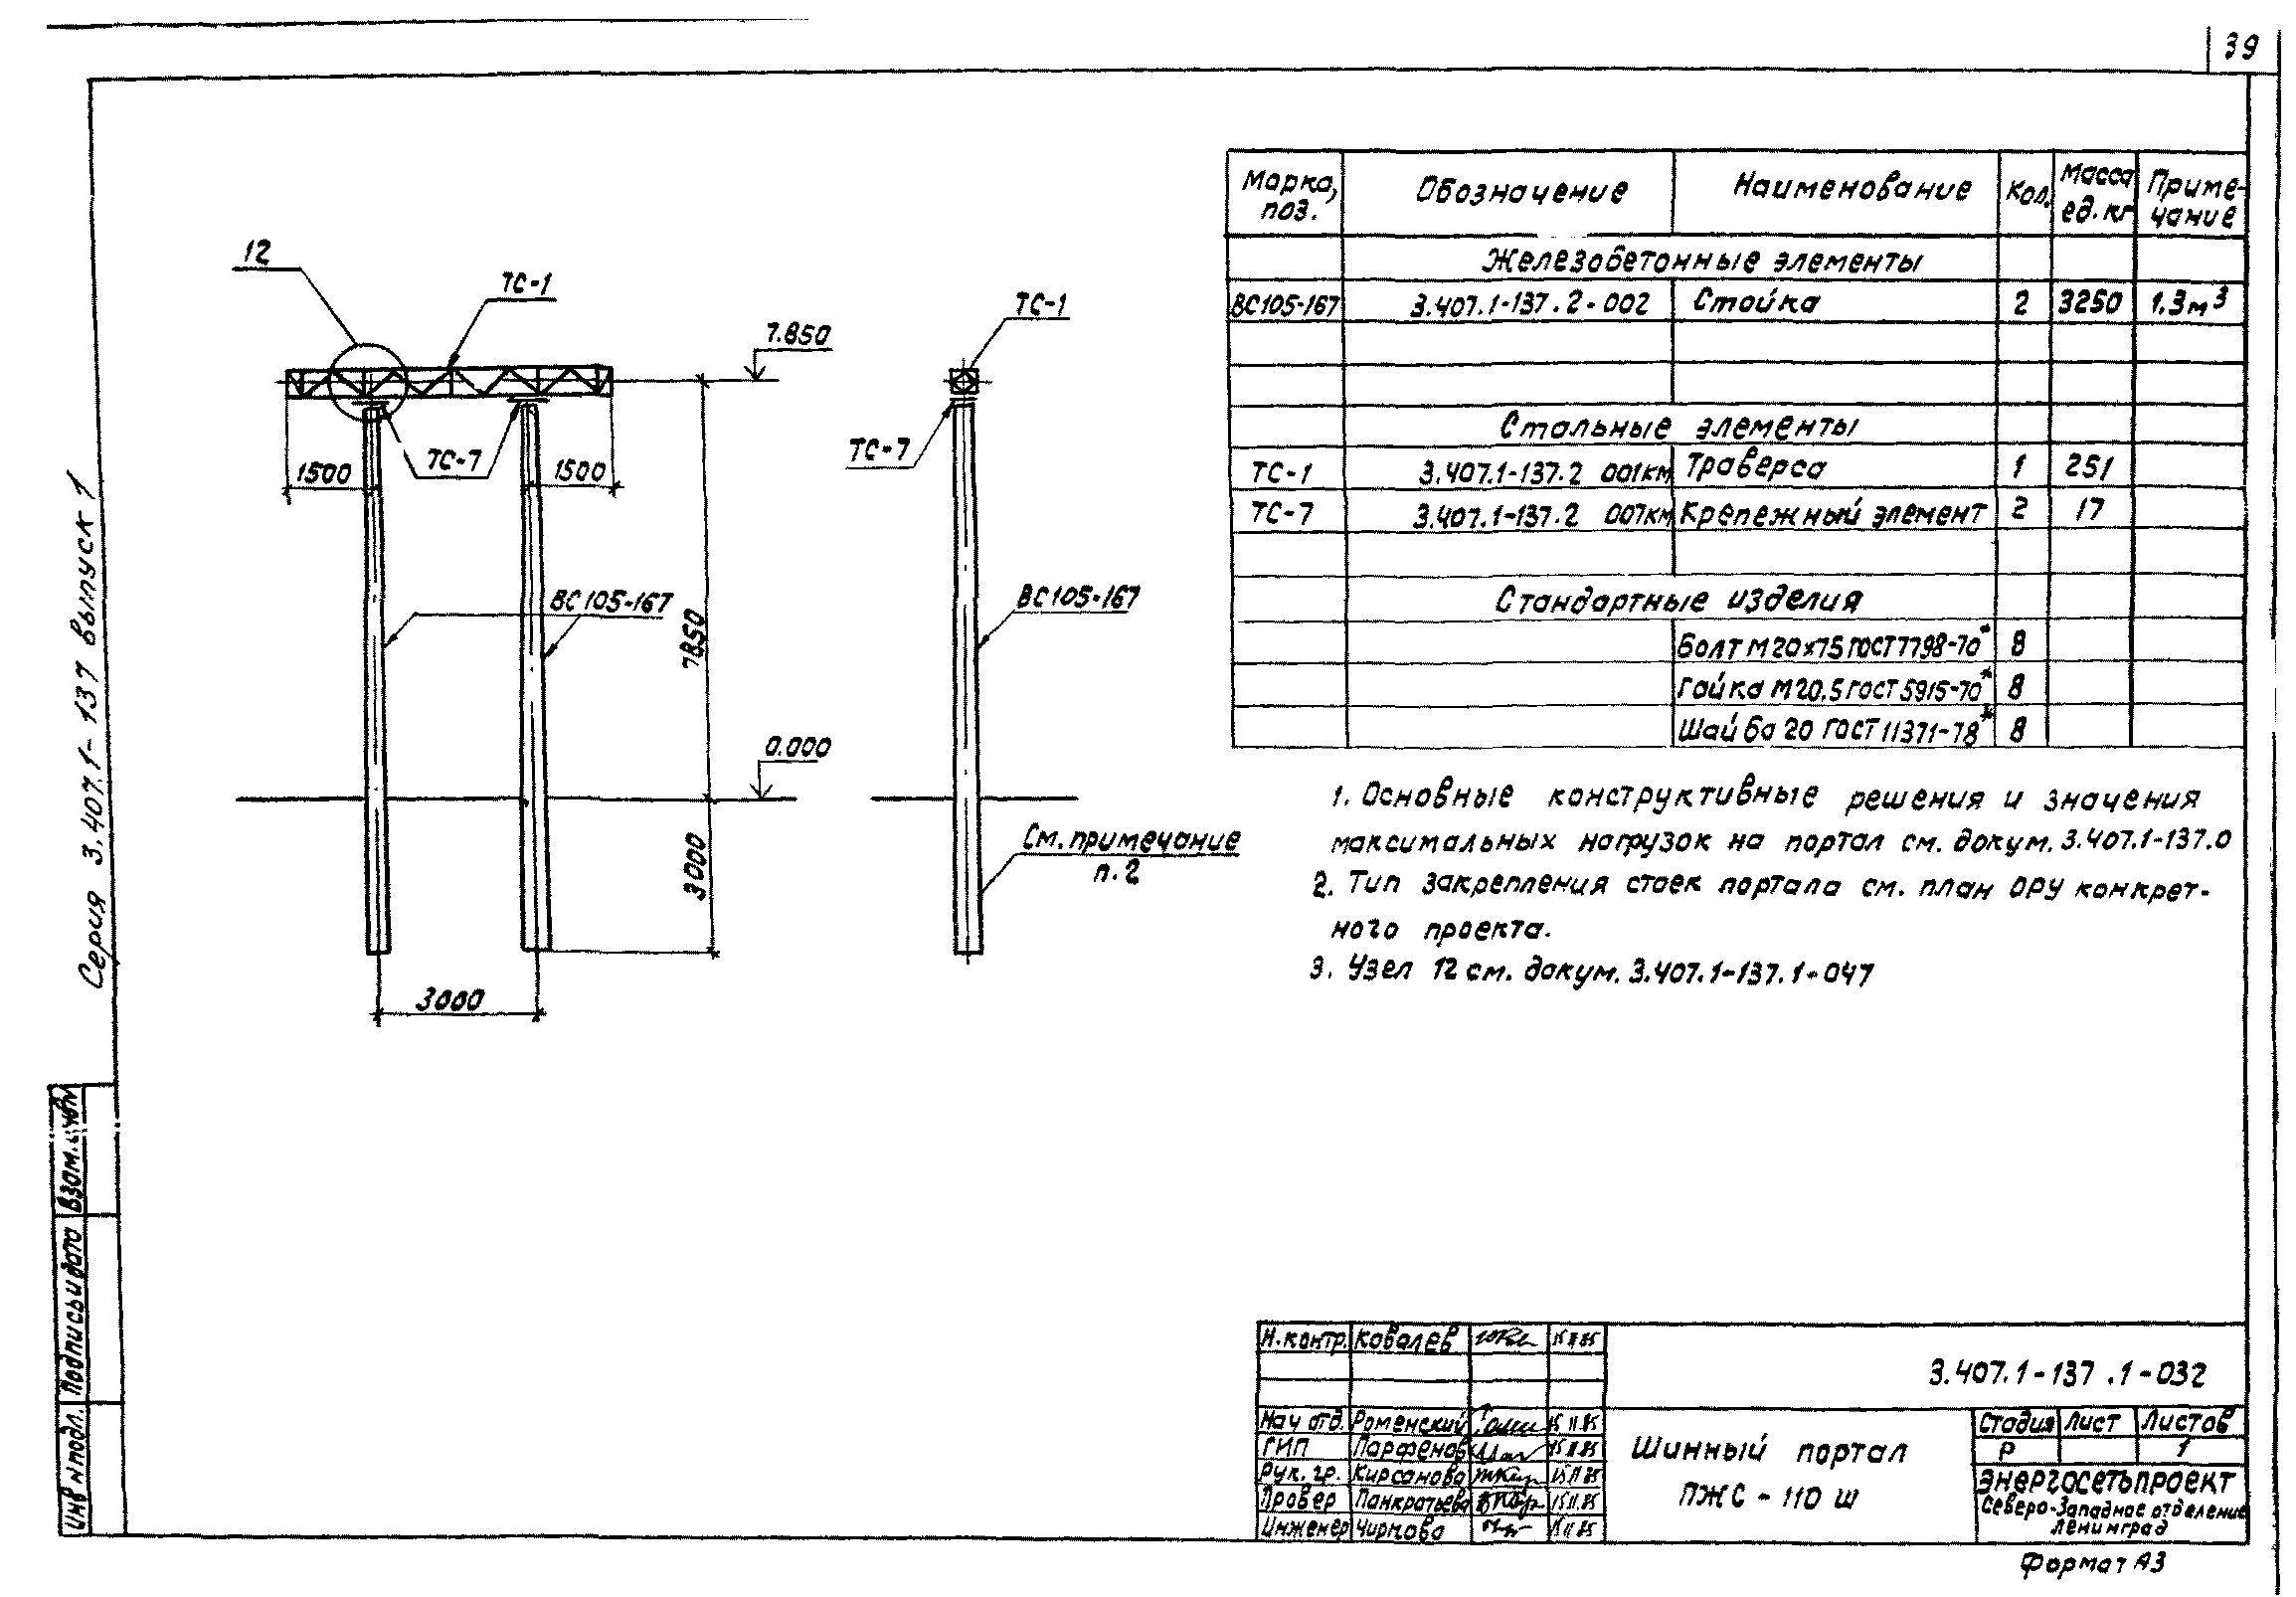 39
Серия 3.407.1-137 выпуск 1
12
ТС-1
7.850
ТС-7
1500
1500
ВС105-167
7850
0.000
3000
3000
ТС-1
ТС-7
ВС105-167
См. примечание
п. 2
Марка, поз. Обозначение Наименование Кол. Масса ед. кг Примечание
Железобетонные элементы
ВС105-167 3.407.1-137.2-002 Стойка 2 3250 1.3м³
Стальные элементы
ТС-1 3.407.1-137.2 001км Траверса 1 251
ТС-7 3.407.1-137.2 007км Крепежный элемент 2 17
Стандартные изделия
Болт М20х75 ГОСТ 7798-70* 8
Гайка М20.5 ГОСТ 5915-70* 8
Шайба 20 ГОСТ 11371-78* 8
1. Основные конструктивные решения и значения
максимальных нагрузок на портал см. докум. 3.407.1-137.0
2. Тип закрепления стоек портала см. план ОРУ конкрет-
ного проекта.
3. Узел 12 см. докум. 3.407.1-137.1-047
Взам. инв
Подпись и дата
Инв N подл.
Н. контр. Ковалев
3.407.1-137.1-032
Нач отд. Роменский 15 11.85
ГИП Парфенов 15.11.85
Рук. гр. Кирсанова 15 11 85
Провер Панкратьева 15.11.85
Инженер Чиркова 15 11 85
Шинный портал
ПЖС-110 Ш
Стадия Лист Листов
Р 1
Энергосетьпроект
Северо-Западное отделение
Ленинград
Формат А3